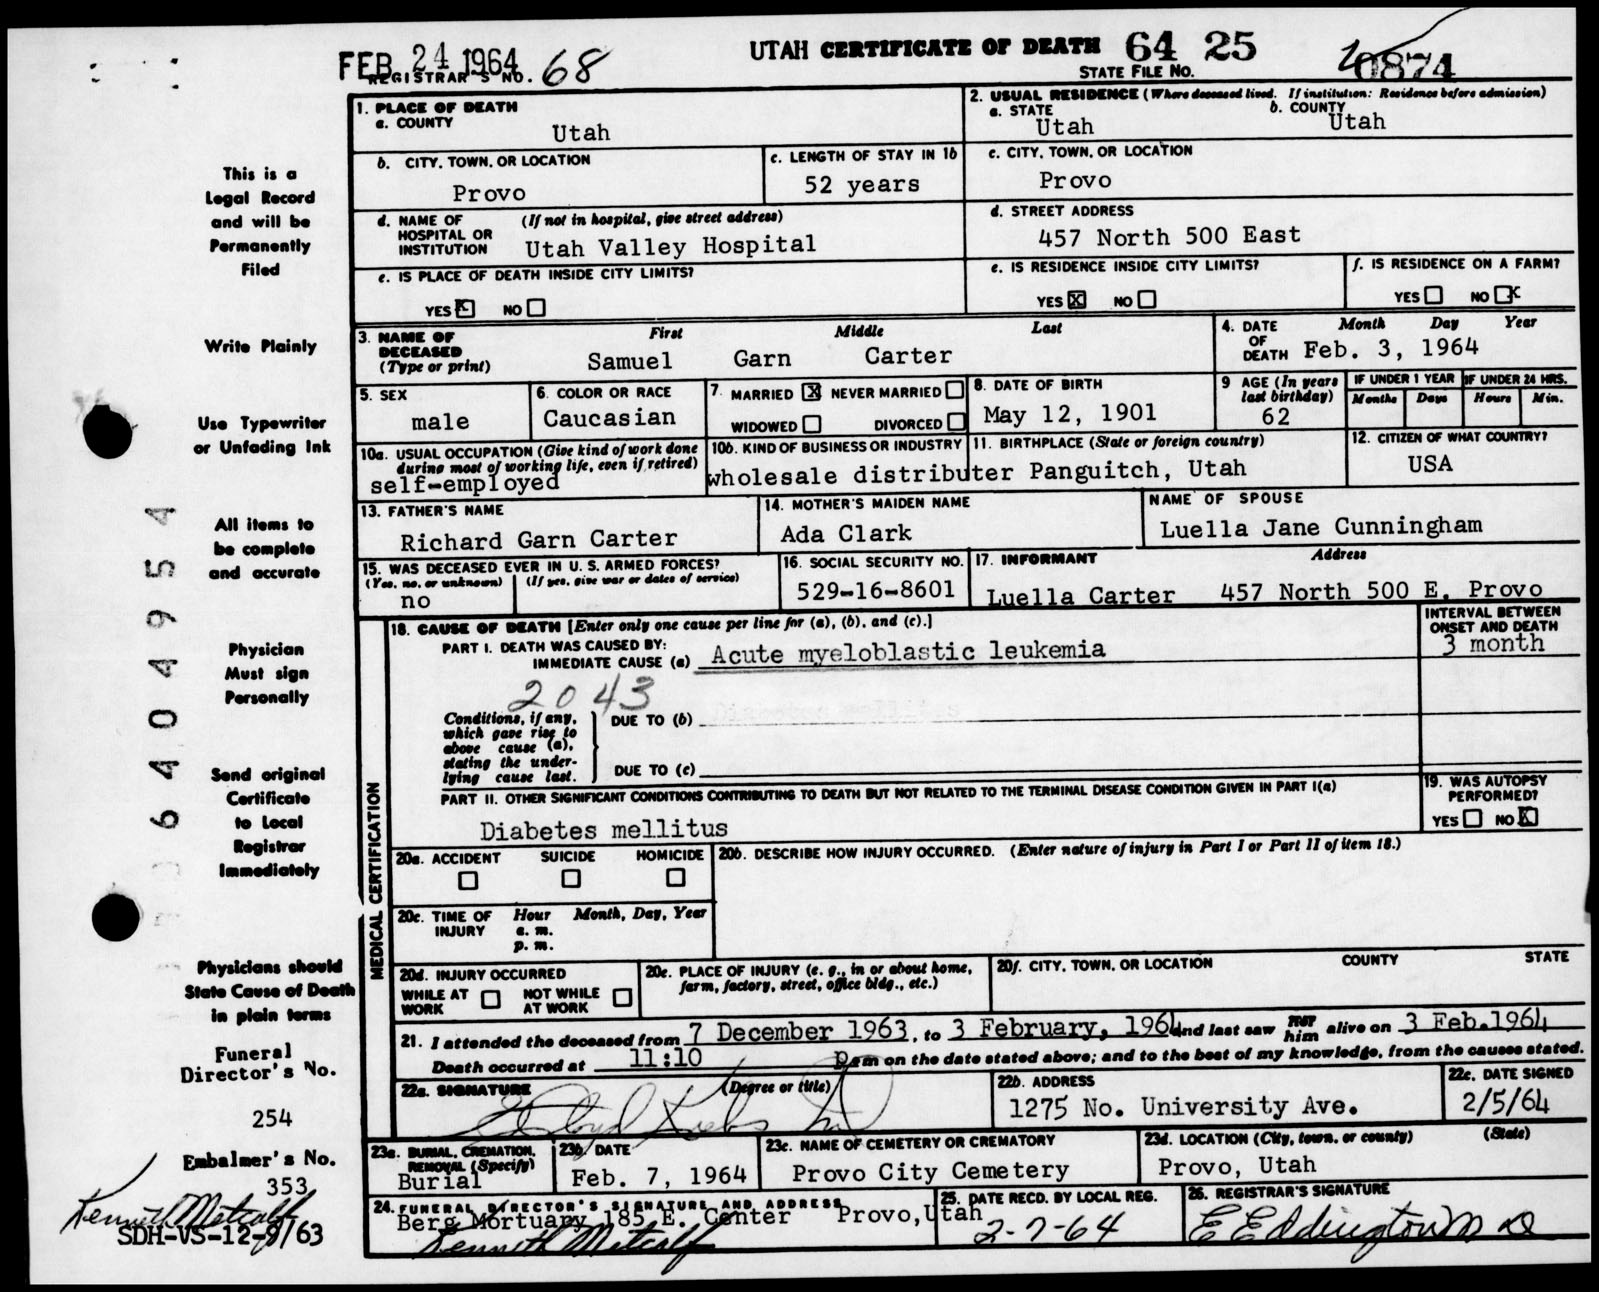 FEB 24 1964
REGISTRAR'S NO. 68
UTAH CERTIFICATE OF DEATH 64 25
STATE FILE NO. 0874
1. PLACE OF DEATH
a. COUNTY
Utah
2. USUAL RESIDENCE (Where deceased lived. If institution: Residence before admission)
a. STATE
Utah
b. COUNTY
Utah
b. CITY, TOWN, OR LOCATION
Provo
c. LENGTH OF STAY IN 1b
52 years
c. CITY, TOWN, OR LOCATION
Provo
d. NAME OF HOSPITAL OR INSTITUTION
(If not in hospital, give street address)
Utah Valley Hospital
d. STREET ADDRESS
457 North 500 East
e. IS PLACE OF DEATH INSIDE CITY LIMITS?
YES X NO
e. IS RESIDENCE INSIDE CITY LIMITS?
YES X NO
f. IS RESIDENCE ON A FARM?
YES NO X
3. NAME OF DECEASED (Type or print)
First Middle Last
Samuel Garn Carter
4. DATE OF DEATH
Month Day Year
Feb. 3, 1964
5. SEX
male
6. COLOR OR RACE
Caucasian
7. MARRIED X NEVER MARRIED
WIDOWED DIVORCED
8. DATE OF BIRTH
May 12, 1901
9 AGE (In years last birthday)
62
IF UNDER 1 YEAR
Months Days
IF UNDER 24 HRS.
Hours Min.
10a. USUAL OCCUPATION (Give kind of work done during most of working life, even if retired)
self-employed
10b. KIND OF BUSINESS OR INDUSTRY
wholesale distributer
11. BIRTHPLACE (State or foreign country)
Panguitch, Utah
12. CITIZEN OF WHAT COUNTRY?
USA
13. FATHER'S NAME
Richard Garn Carter
14. MOTHER'S MAIDEN NAME
Ada Clark
NAME OF SPOUSE
Luella Jane Cunningham
15. WAS DECEASED EVER IN U. S. ARMED FORCES?
(Yes, no, or unknown) (If yes, give war or dates of service)
no
16. SOCIAL SECURITY NO.
529-16-8601
17. INFORMANT Address
Luella Carter 457 North 500 E. Provo
18. CAUSE OF DEATH [Enter only one cause per line for (a), (b), and (c).]
INTERVAL BETWEEN ONSET AND DEATH
PART I. DEATH WAS CAUSED BY:
IMMEDIATE CAUSE (a) Acute myeloblastic leukemia
3 month
2043
Conditions, if any, which gave rise to above cause (a), stating the underlying cause last.
DUE TO (b)
DUE TO (c)
PART II. OTHER SIGNIFICANT CONDITIONS CONTRIBUTING TO DEATH BUT NOT RELATED TO THE TERMINAL DISEASE CONDITION GIVEN IN PART I(a)
Diabetes mellitus
19. WAS AUTOPSY PERFORMED?
YES NO X
MEDICAL CERTIFICATION
20a. ACCIDENT SUICIDE HOMICIDE
20b. DESCRIBE HOW INJURY OCCURRED. (Enter nature of injury in Part I or Part II of item 18.)
20c. TIME OF INJURY
Hour Month, Day, Year
a. m.
p. m.
20d. INJURY OCCURRED
WHILE AT WORK NOT WHILE AT WORK
20e. PLACE OF INJURY (e. g., in or about home, farm, factory, street, office bldg., etc.)
20f. CITY, TOWN, OR LOCATION COUNTY STATE
21. I attended the deceased from 7 December 1963, to 3 February, 1964 and last saw him alive on 3 Feb.1964
Death occurred at 11:10 p m on the date stated above; and to the best of my knowledge, from the causes stated.
22a. SIGNATURE (Degree or title)
22b. ADDRESS
1275 No. University Ave.
22c. DATE SIGNED
2/5/64
23a. BURIAL, CREMATION, REMOVAL (Specify)
Burial
23b. DATE
Feb. 7, 1964
23c. NAME OF CEMETERY OR CREMATORY
Provo City Cemetery
23d. LOCATION (City, town, or county) (State)
Provo, Utah
24. FUNERAL DIRECTOR'S SIGNATURE AND ADDRESS
Berg Mortuary 185 E. Center Provo, Utah
Kenneth Metcalf
25. DATE RECD. BY LOCAL REG.
2-7-64
26. REGISTRAR'S SIGNATURE
E Eddington M D
This is a
Legal Record
and will be
Permanently
Filed
Write Plainly
Use Typewriter
or Unfading Ink
All items to
be complete
and accurate
Physician
Must sign
Personally
Send original
Certificate
to Local
Registrar
Immediately
Physicians should
State Cause of Death
in plain terms
Funeral
Director's No.
254
Embalmer's No.
353
Kenneth Metcalf
SDH-VS-12-9/63
6404954